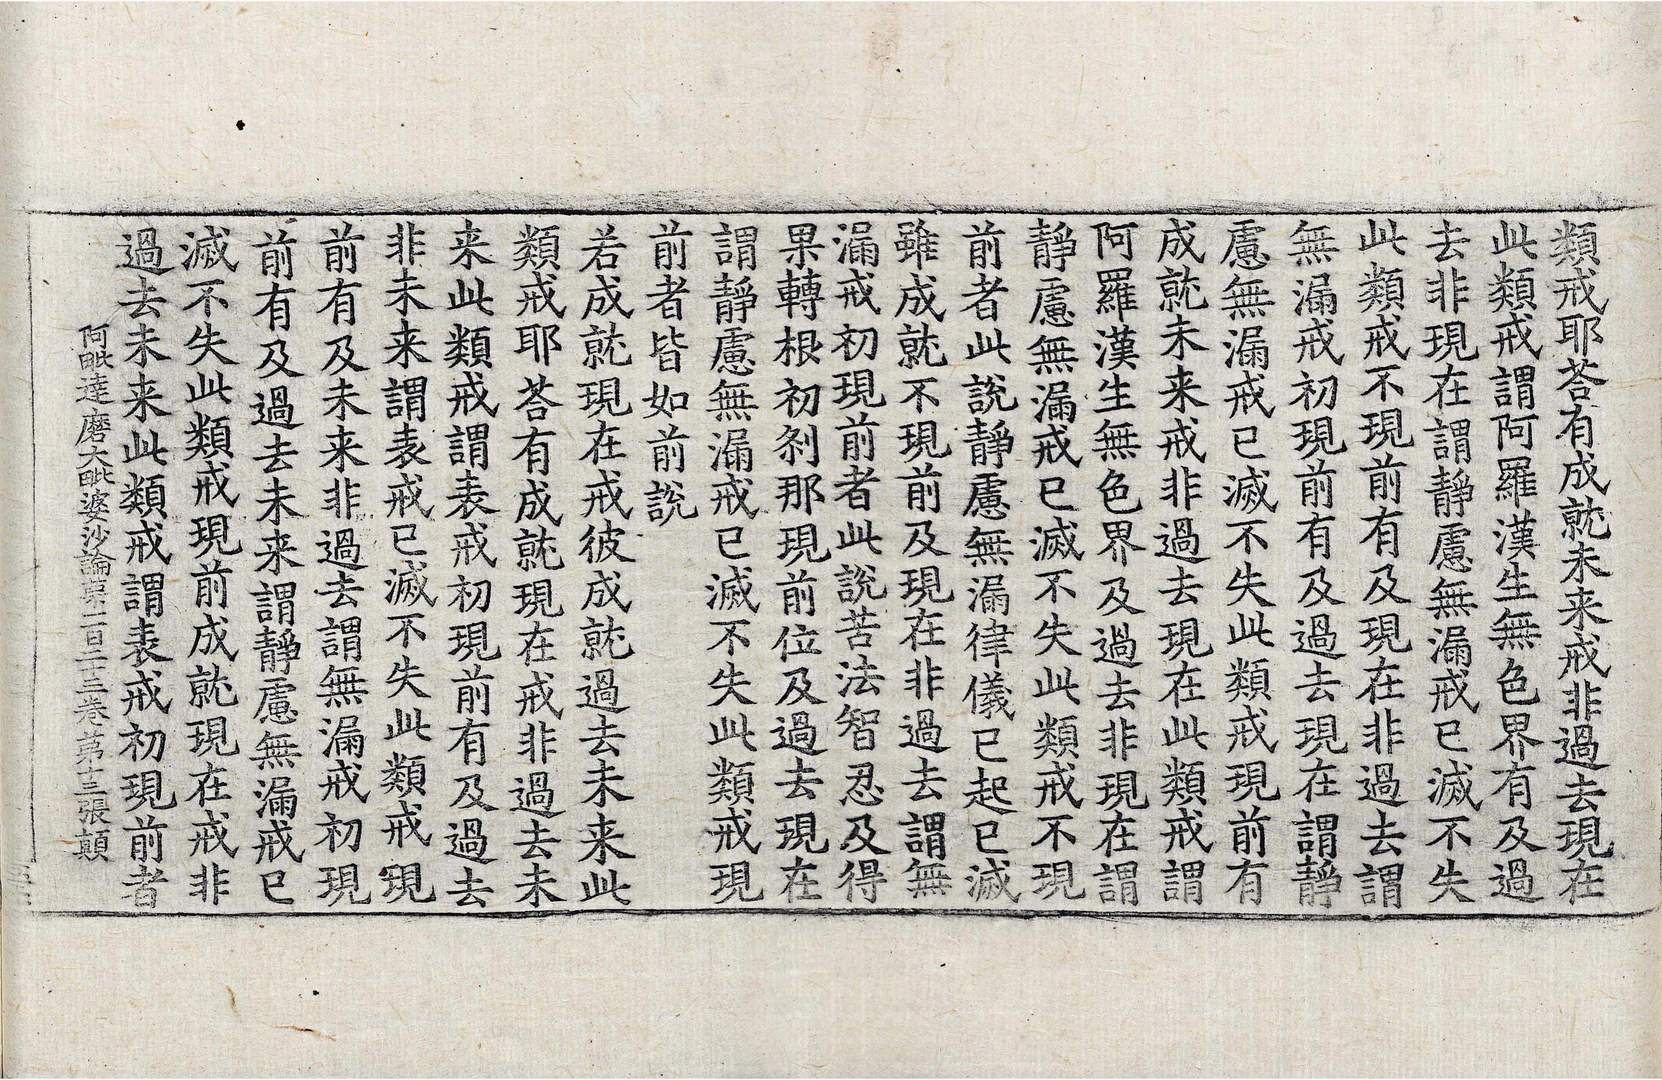 類戒耶荅有成就未来戒非過去現在
此類戒謂阿羅漢生無色界有及過
去非現在謂靜慮無漏戒已滅不失
此類戒不現前有及現在非過去謂
無漏戒初現前有及過去現在謂靜
慮無漏戒已滅不失此類戒現前有
成就未来戒非過去現在此類戒謂
阿羅漢生無色界及過去非現在謂
靜慮無漏戒已滅不失此類戒不現
前者此說靜慮無漏律儀已起已滅
雖成就不現前及現在非過去謂無
漏戒初現前者此說苦法智忍及得
果轉根初剎那現前位及過去現在
謂靜慮無漏戒已滅不失此類戒現
前者皆如前說
若成就現在戒彼成就過去未来此
類戒耶荅有成就現在戒非過去未
来此類戒謂表戒初現前有及過去
非未来謂表戒已滅不失此類戒現
前有及未来非過去謂無漏戒初現
前有及過去未来謂靜慮無漏戒已
滅不失此類戒現前成就現在戒非
過去未来此類戒謂表戒初現前者
阿毗達磨大毗婆沙論第一百二十三卷 第十三張 顛